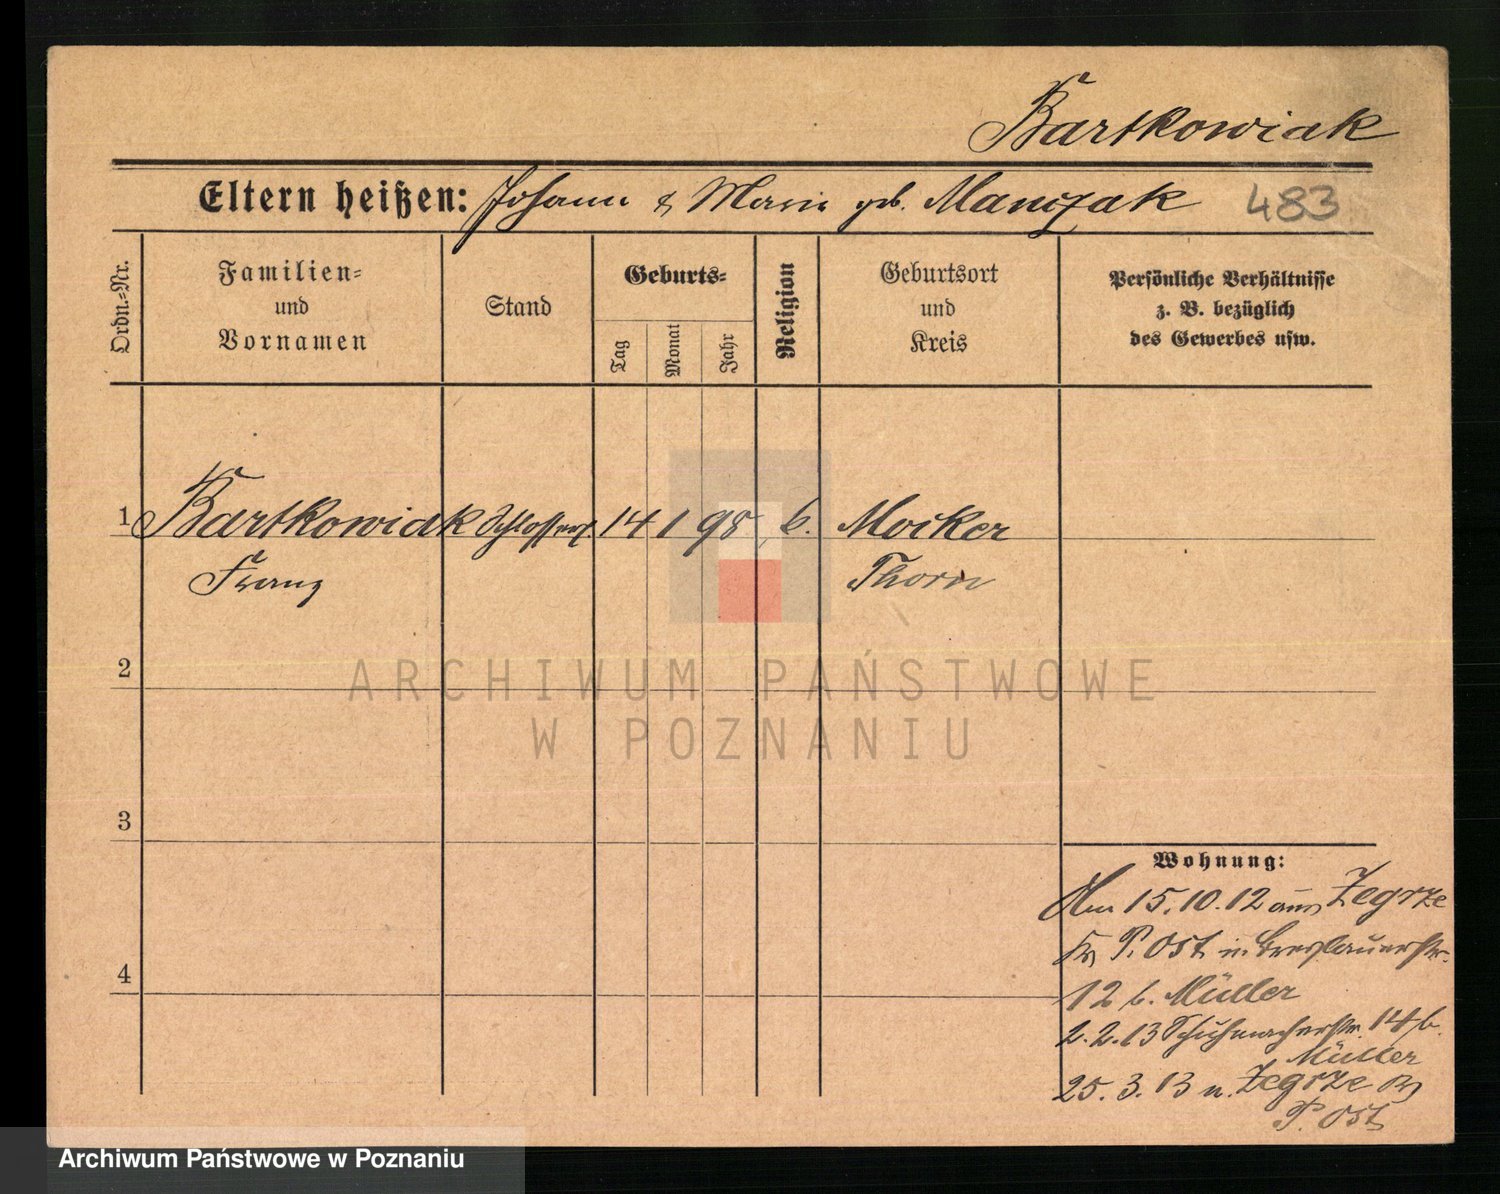 Bartkowiak
Eltern heißen: Johann & Marie geb. Manczak 483
Ordn.-Nr.
Familien- und Vornamen
Stand
Geburts-
Tag
Monat
Jahr
Religion
Geburtsort und Kreis
Persönliche Verhältnisse
z. B. bezüglich
des Gewerbes usw.
1 Bartkowiak Schlosserl. 14 1 98 k. Mocker
Franz Thorn
2
ARCHIWUM PAŃSTWOWE
W POZNANIU
3
Wohnung:
Am 15.10.12 aus Zegrze
Kr P. Ost n. Breslauerstr.
4
12 b. Müller
2.2.13 Schuhmacherstr. 14 b.
Müller
25.3.13 n. Zegrze Kr
P. Ost
Archiwum Państwowe w Poznaniu